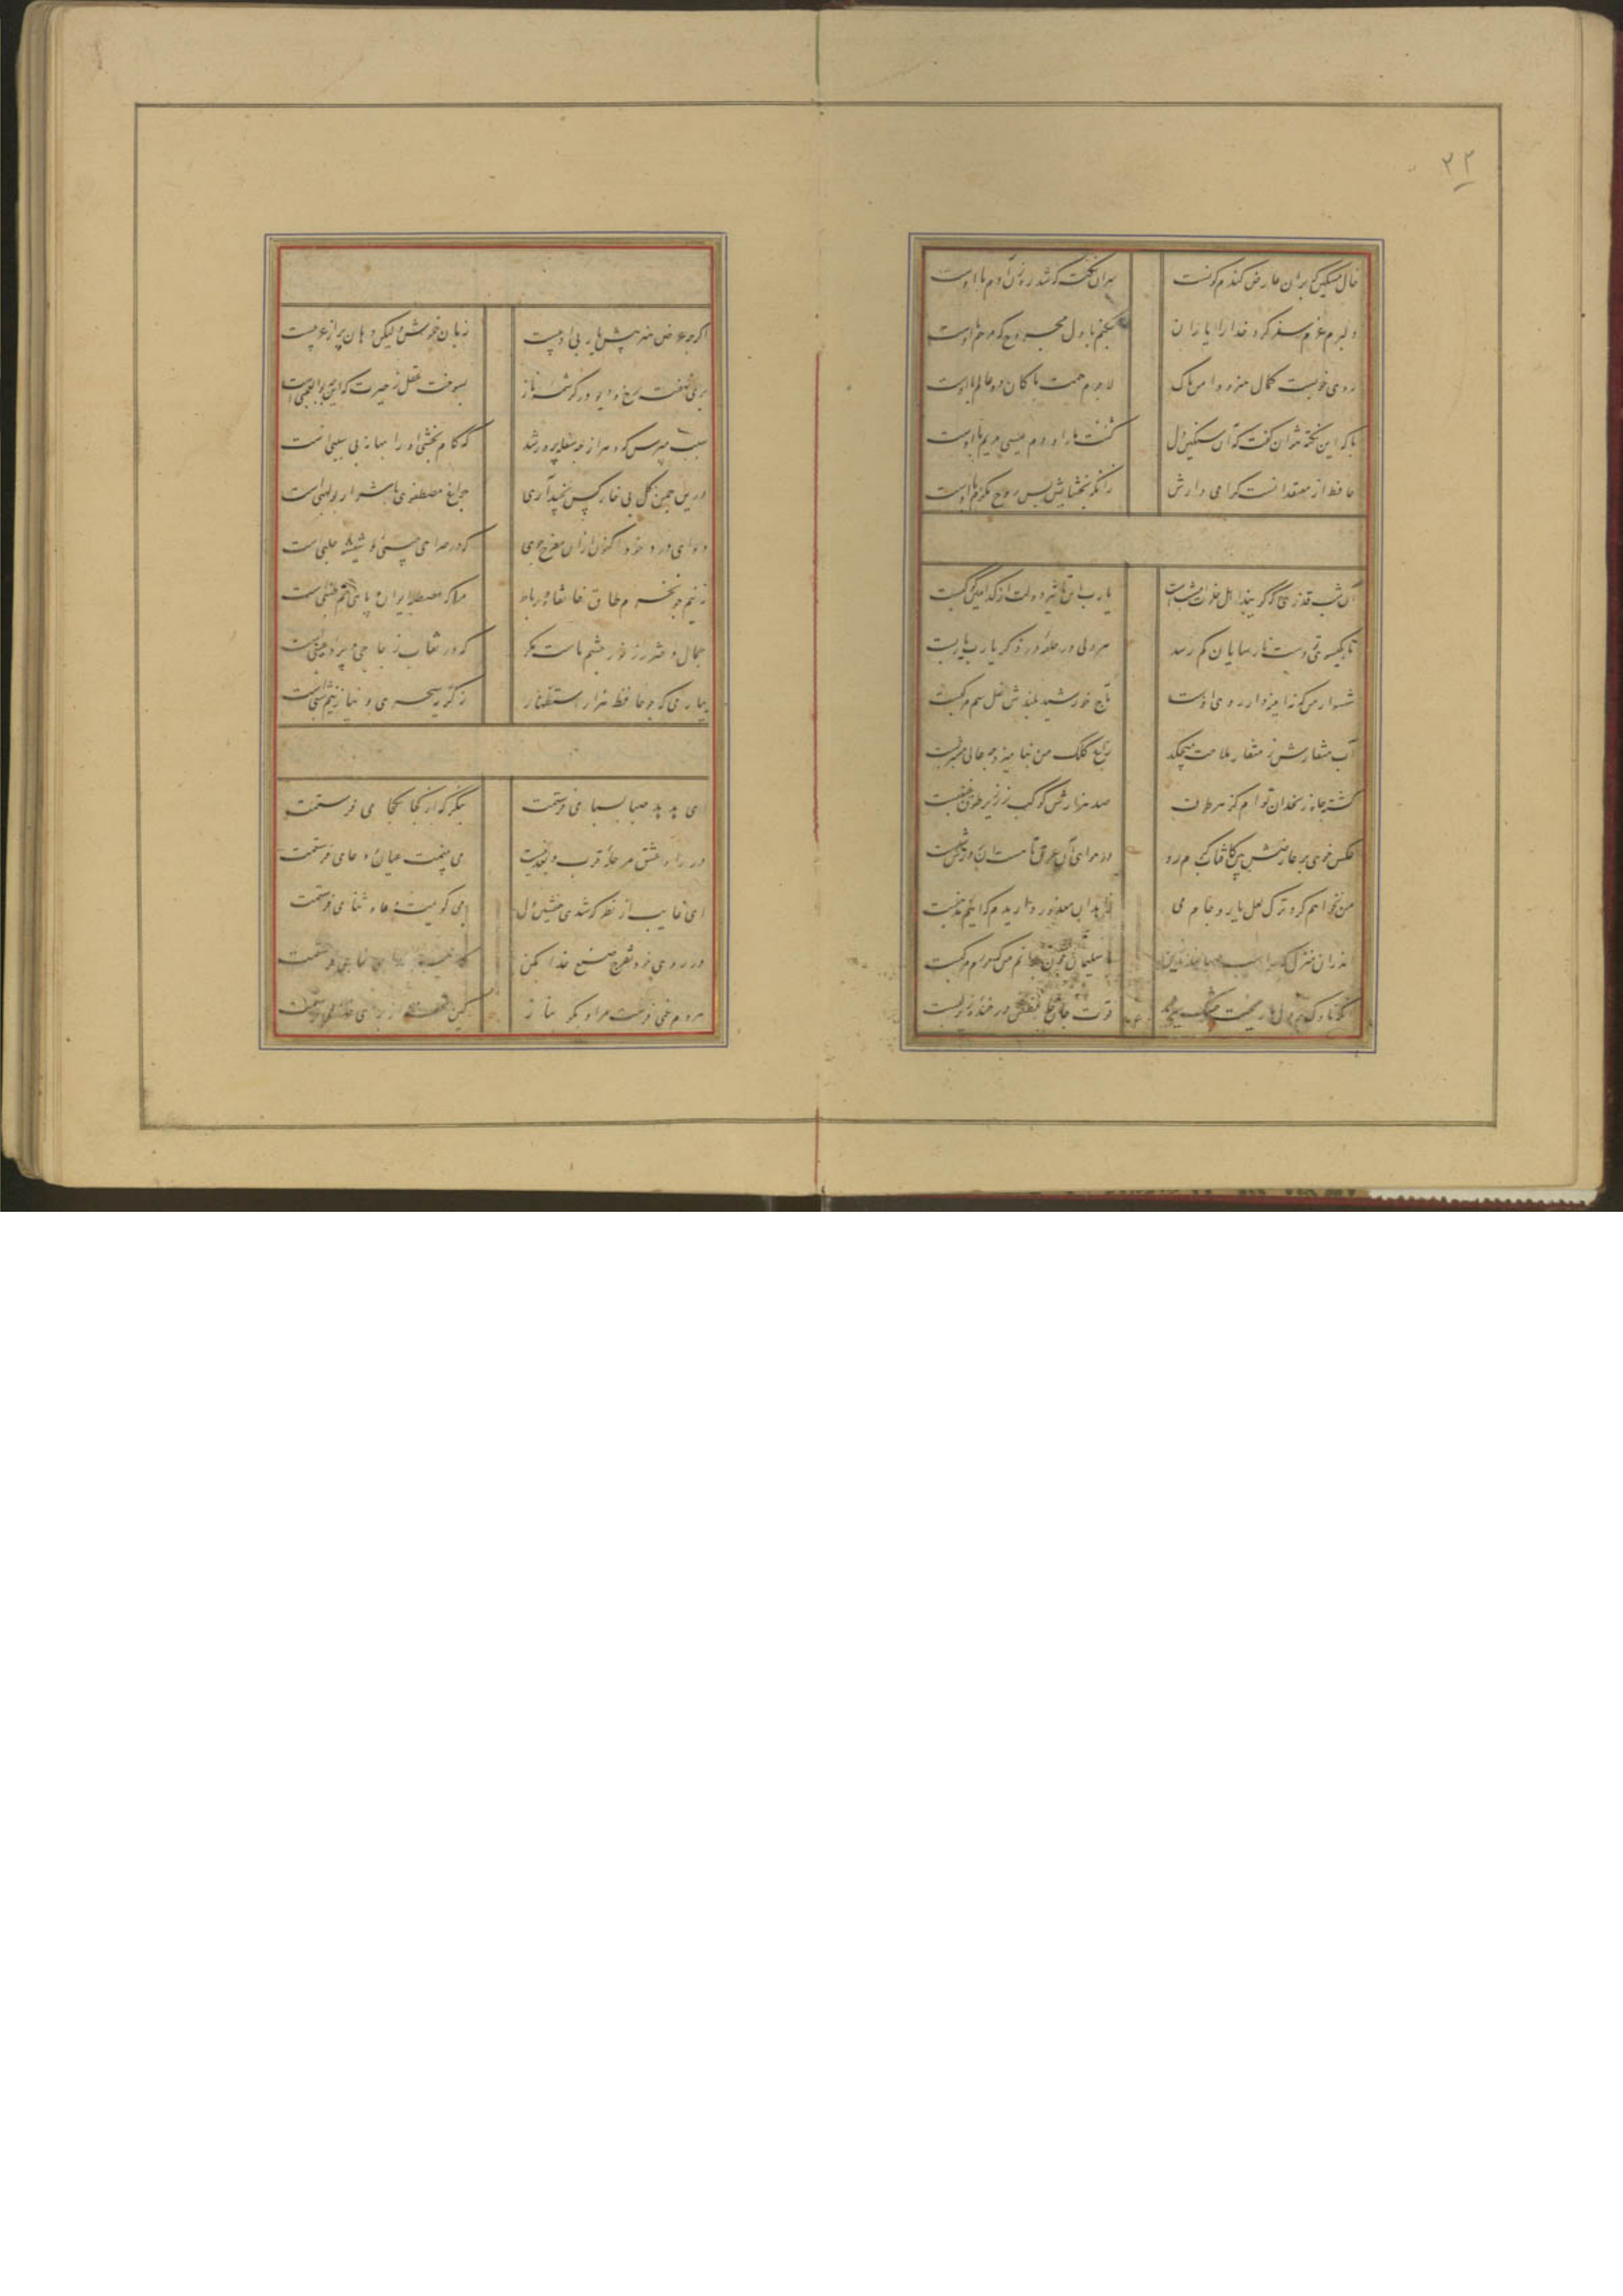 ۳۲
خال مشکین که بران عارض گندم گونست سر آن نکته که شد رهزن آدم با اوست
دلبرم عزم سفر کرد خدا را یاران چکنم با دل مجروح که مرهم با اوست
روی خوبست کمال هنر و دامن پاک لاجرم همت پاکان دو عالم با اوست
با که این نکته توان گفت که آن سنگین دل کشت ما را و دم عیسی مریم با اوست
حافظ از معتقدانست گرامی دارش زانکه بخشایش بس روح مکرم با اوست
آن شب قدری که گویند اهل خلوت امشبست یارب این تاثیر دولت از کدامین کوکبست
تا بگیسوی تو دست ناسزایان کم رسد هر دلی در حلقه در ذکر یارب یاربست
شهسوار من که مه آینه دار روی اوست تاج خورشید بلندش نعل سم مرکبست
آب حیوانش ز منقار بلاغت میچکد زاغ کلک من بنامیزد چه عالی مشربست
کشته چاه زنخدان توام کز هر طرف صد هزارش گردن جان زیر طوق غبغبست
عکس خوی بر عارضش بین کافتاب گرم رو در هوای آن عرق تا هست هر روزش تبست
من نخواهم کرد ترک لعل یار و جام می زاهدان معذور داریدم که اینم مذهبست
اندران با سلیمان چون برانم من که مورم مرکبست
آنکه ناوک بر دل من زیر چشمی میزند قوت جان حافظش در خنده زیر لبست
اگرچه عرض هنر پیش یار بی ادبیست زبان خموش ولیکن دهان پر از عربیست
پری نهفته رخ و دیو در کرشمه و ناز بسوخت عقل ز حیرت که این چه بوالعجبیست
سبب مپرس که چرخ از چه سفله پرور شد که کام بخشی او را بهانه بی سببیست
درین چمن گل بی خار کس نچید آری چراغ مصطفوی با شرار بولهبیست
دوای درد خود اکنون از آن مفرح جوی که در صراحی چینی و شیشه حلبیست
به نیم جو نخرم طاق خانقاه و رباط مرا که مصطبه ایوان و پای خم طنبیست
جمال دختر رز نور چشم ماست مگر که در نقاب زجاجی و پرده عنبیست
بیار می که چو حافظ هزارم استظهار ز گریه سحری و نیاز نیم شبیست
ای هدهد صبا بسبا می فرستمت بنگر که از کجا بکجا می فرستمت
در راه عشق مرحله قرب و بعد نیست می بینمت عیان و دعا می فرستمت
ای غایب از نظر که شدی همنشین دل می گویمت دعا و ثنا می فرستمت
در روی خود تفرج صنع خدا بکن می فرستمت
هردم غمی فرست مرا و بگو بناز کین تحفه از برای خدا می فرستمت